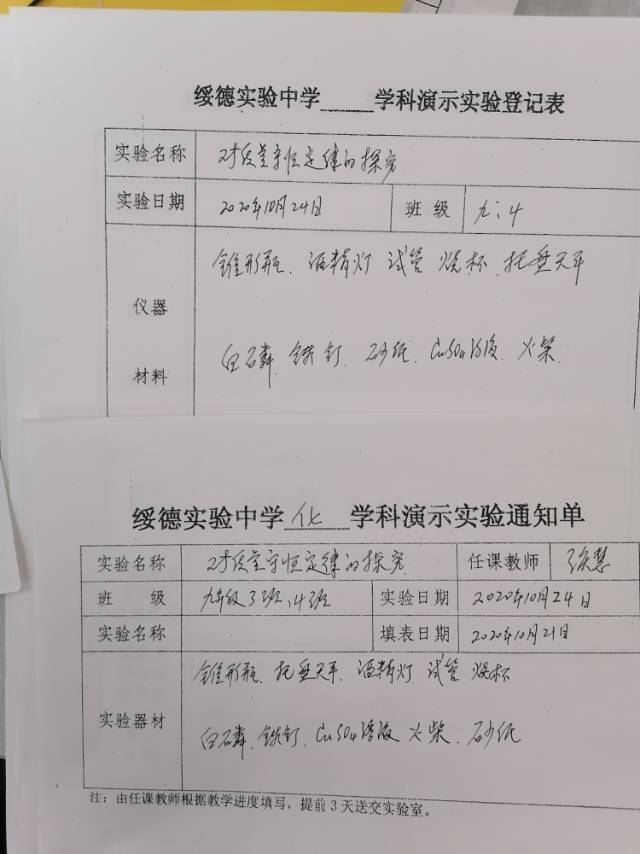 绥德实验中学____学科演示实验登记表
实验名称 对质量守恒定律的探究
实验日期 2020年10月24日 班 级 九:4
锥形瓶、酒精灯 试管 烧杯、托盘天平
仪器
白石磷 铁钉、砂纸、CuSO4溶液、火柴、
材料
绥德实验中学 化 学科演示实验通知单
实验名称 对质量守恒定律的探究 任课教师 张慧
班 级 九年级3班、4班 实验日期 2020年10月24日
实验名称 填表日期 2020年10月21日
锥形瓶、托盘天平、酒精灯 试管 烧杯
实验器材
白石磷、铁钉、CuSO4溶液 火柴、砂纸
注：由任课教师根据教学进度填写，提前3天送交实验室。